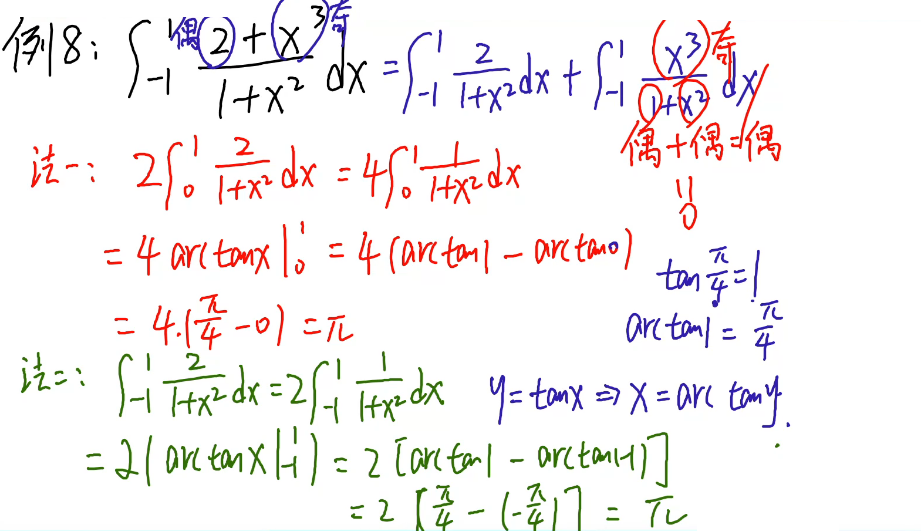 例8: ∫_{-1}^{1} (2+x³)/(1+x²) dx = ∫_{-1}^{1} 2/(1+x²) dx + ∫_{-1}^{1} x³/(1+x²) dx
偶 奇 奇
偶+偶=偶
=
0
法一: 2∫_0^1 2/(1+x²) dx = 4∫_0^1 1/(1+x²) dx
= 4 arctanx |_0^1 = 4(arctan1 - arctan0)
= 4·(π/4 - 0) = π
tan π/4 = 1
arctan1 = π/4
法二: ∫_{-1}^{1} 2/(1+x²) dx = 2∫_{-1}^{1} 1/(1+x²) dx
y=tanx ⇒ x=arctany.
= 2(arctanx |_{-1}^{1}) = 2[arctan1 - arctan(-1)]
= 2[π/4 - (-π/4)] = π